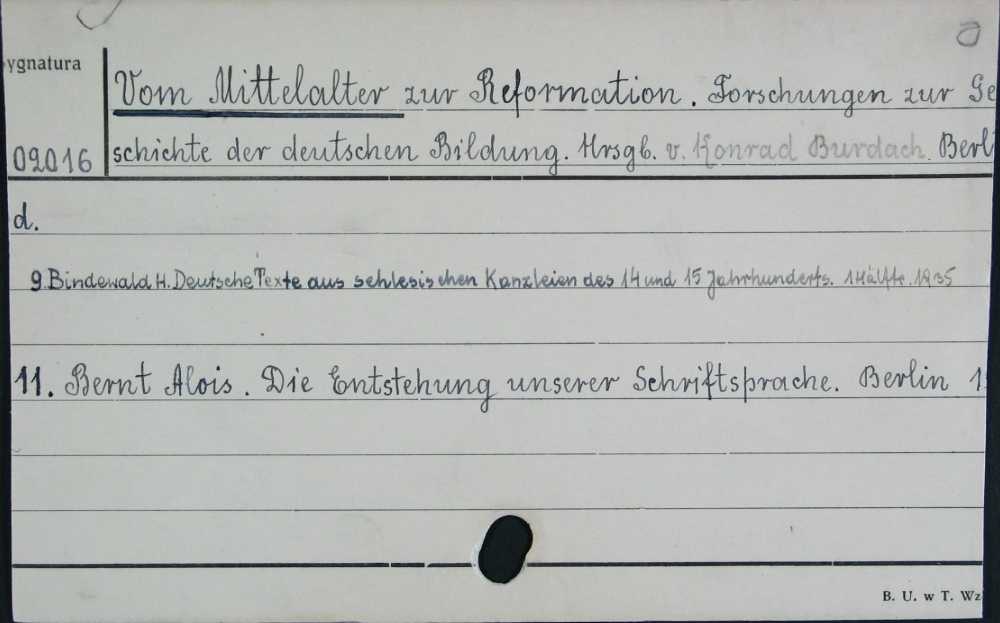 ygnatura
Vom Mittelalter zur Reformation. Forschungen zur Ge
09016 schichte der deutschen Bildung. Hrsgb. v. Konrad Burdach. Berl
d.
9. Bindewald H. Deutsche Texte aus schlesischen Kanzleien des 14 und 15 Jahrhunderts. 1 Hälfte. 1935
11. Bernt Alois. Die Entstehung unserer Schriftsprache. Berlin 1
B. U. w T. Wz